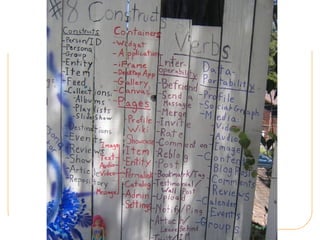 #8 Construct
Constructs
-Person/ID
-Persona
-Group
-Entity
-Item
-Feed
-Collections:
-Albums
-Playlists
-Slideshow
-Destinations
-Events
-Reviews
-Show
-Article
-Repository
Containers
-Widget
-Application
-iFrame
-Desktop App
-Gallery
-Canvas
-Pages
-Profile
-Wiki
-Showcase
-Item
-Entity
-Permalink
-Catalog
-Admin
Settings
Image
Text
Audio
Video
Message
Verbs
Inter-
operability
-Befriend
-Send
Message
-Merge
-Invite
-Rate
-Comment on
-Reblog
-Post
-Bookmark/Tag
-Testimonial/
Wall Post
-Upload
-Notify/Ping
-Activity
Leave Behind
Data-
Portability
-Profile
-Social Graph
-Media
-Video
-Audio
-Image
-Content
-Blog Posts
-Comments
-Reviews
-Calendar
-Events
-Groups